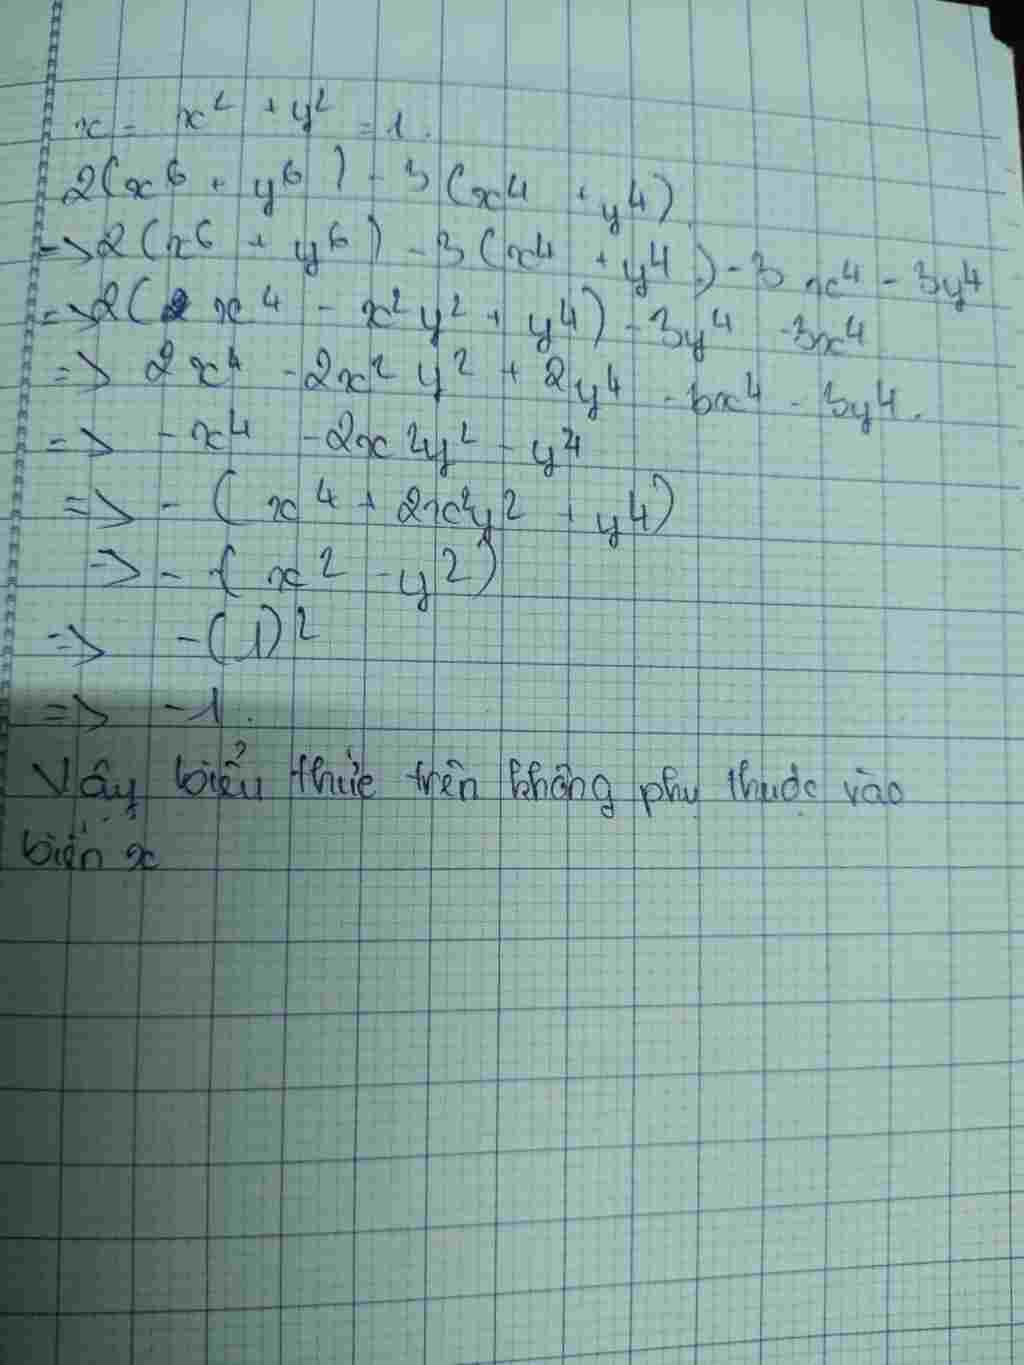 x = x² + y² = 1.
2(x⁶ + y⁶) - 3(x⁴ + y⁴)
=> 2(x⁶ + y⁶) - 3(x⁴ + y⁴) - 3x⁴ - 3y⁴
=> 2(x⁴ - x²y² + y⁴) - 3y⁴ - 3x⁴
=> 2x⁴ - 2x²y² + 2y⁴ - 3x⁴ - 3y⁴.
=> - x⁴ - 2x²y² - y⁴
=> - (x⁴ + 2x²y² + y⁴)
=> - (x² - y²)
=> -(1)²
=> -1.
Vậy biểu thức trên không phụ thuộc vào
biến x